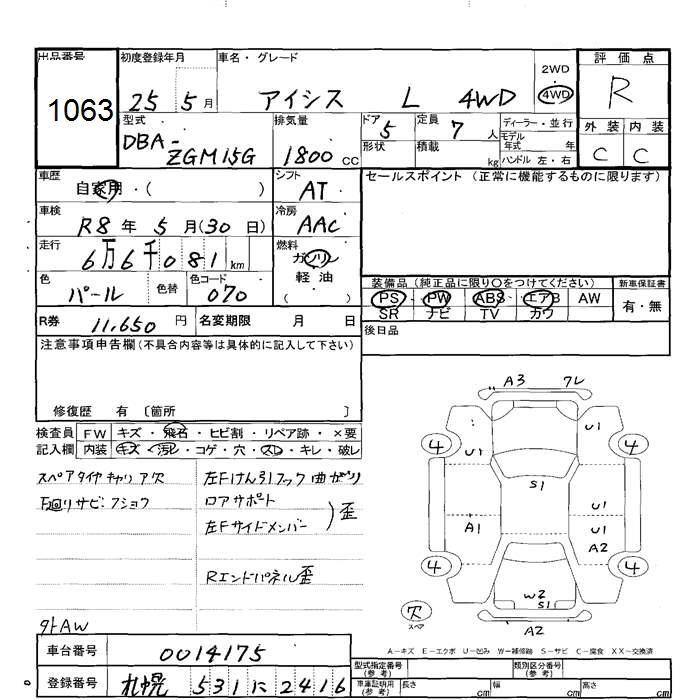 出品番号 初度登録年月 車名・グレード 2WD 評価点
1063 25 5月 アイシス L 4WD 4WD R
型式 排気量 ドア 定員 ディーラー・並行 外装 内装
DBA-ZGM15G 1800CC 5 7人 モデル年式 年 C C
形状 積載 kg ハンドル 左・右
車歴 自家用・( ) シフト AT セールスポイント(正常に機能するものに限ります)
車検 R8年5月(30日) 冷房 AAC
走行 6万6千081km 燃料 ガソリン
軽油
( )
色 パール 色替 色コード 070
装備品(純正品に限り〇をつけてください) 新車保証書
PS PW ABS エアB AW 有・無
SR ナビ TV カワ
R券 11,650円 名変期限 月 日 後日品
注意事項申告欄(不具合内容等は具体的に記入して下さい)
修復歴 有 〔箇所 〕
検査員 FW キズ・飛石・ヒビ割・リペア跡・×要
記入欄 内装 キズ・汚レ・コゲ・穴・スレ・キレ・破レ
スペアタイヤキャリア欠
下廻りサビ・フショク
左Fけん引フック曲がり
ロアサポート
左Fサイドメンバー
)歪
Rエンドパネル歪
外AW
A3 フレ
U1 U1
4 4
S1
U1
A1 U1
A2
4 4
W2
S1
欠
スペア
A2
A-キズ E-エクボ U-凹み W-補修跡 S-サビ C-腐食 XX-交換済
車台番号 0014175
型式指定番号(参考) 類別区分番号(参考)
登録番号 札幌 531に2416
車庫証明用(参考) 長さ cm 幅 cm 高さ cm